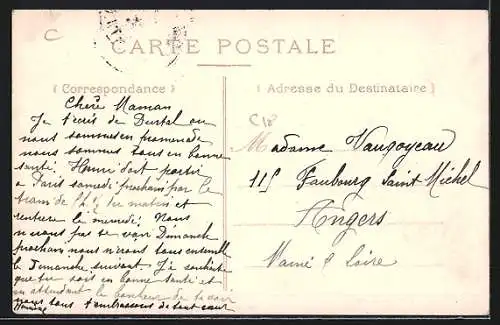 C
CARTE POSTALE
( Correspondance )
( Adresse du Destinataire )
Chère Maman
Je t'écris de Durtal ou
nous sommes en promenade
nous sommes tous en bonne
santé. Henri doit partir
a Paris samedi prochain par le
train de du matin et
rentrera le mercredi. Nous
n'irons pas te voir Dimanche
prochain nous n'irons tous ensemble
le Dimanche suivant. Je souhaite
que tu sois en bonne santé et
en attendant le bonheur de te voir
nous tous t'embrassons de tout cœur
C18
Madame Vaugoyeau
115 Faubourg Saint Michel
Angers
Maine & Loire